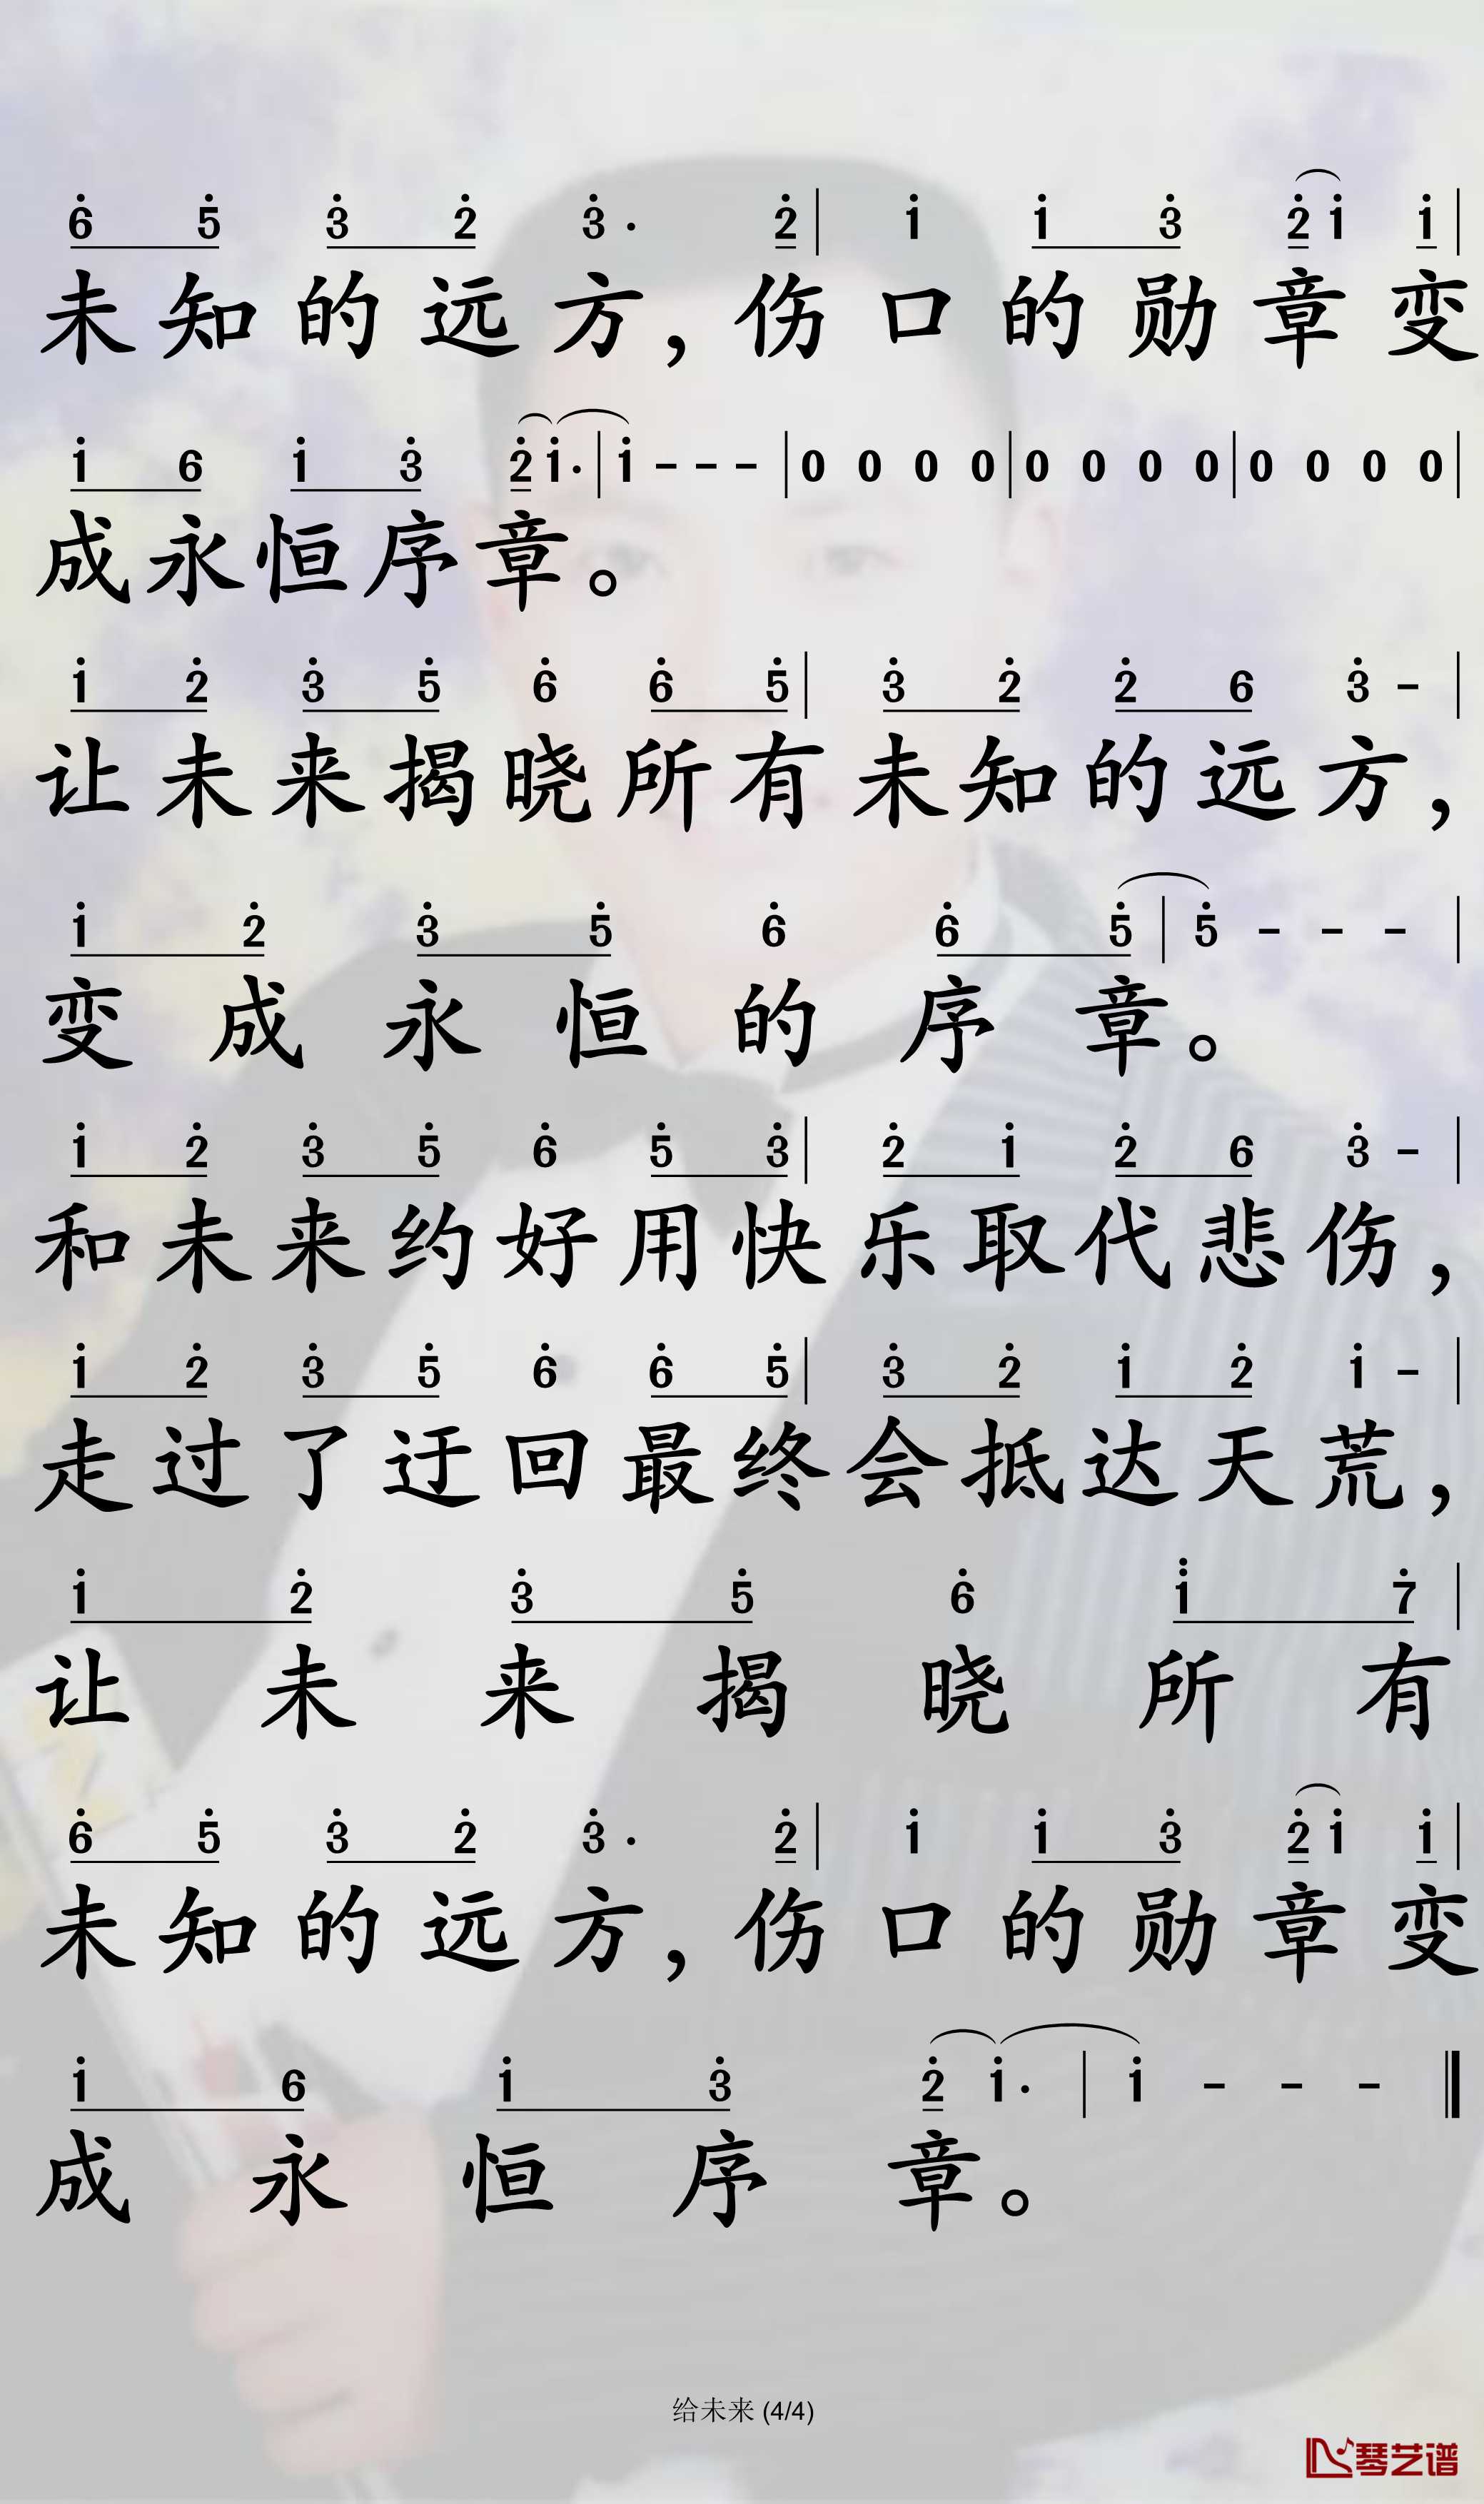 6̇ 5̇ 3̇ 2̇ 3̇ · 2̇ | 1̇ 1̇ 3̇ 2̇ 1̇ 1̇ |
未知的远方，伤口的勋章变
1̇ 6 1̇ 3̇ 2̇ 1̇ · | 1̇ - - - | 0 0 0 0 | 0 0 0 0 | 0 0 0 0 |
成永恒序章。
1̇ 2̇ 3̇ 5̇ 6̇ 6̇ 5̇ | 3̇ 2̇ 2̇ 6 3̇ - |
让未来揭晓所有未知的远方，
1̇ 2̇ 3̇ 5̇ 6̇ 6̇ 5̇ | 5̇ - - - |
变成永恒的序章。
1̇ 2̇ 3̇ 5̇ 6̇ 5̇ 3̇ | 2̇ 1̇ 2̇ 6 3̇ - |
和未来约好用快乐取代悲伤，
1̇ 2̇ 3̇ 5̇ 6̇ 6̇ 5̇ | 3̇ 2̇ 1̇ 2̇ 1̇ - |
走过了迂回最终会抵达天荒，
1̇ 2̇ 3̇ 5̇ 6̇ 1̈ 7̇ |
让未来揭晓所有
6̇ 5̇ 3̇ 2̇ 3̇ · 2̇ | 1̇ 1̇ 3̇ 2̇ 1̇ 1̇ |
未知的远方，伤口的勋章变
1̇ 6 1̇ 3̇ 2̇ 1̇ · | 1̇ - - - ‖
成永恒序章。
给未来 (4/4)
琴艺谱